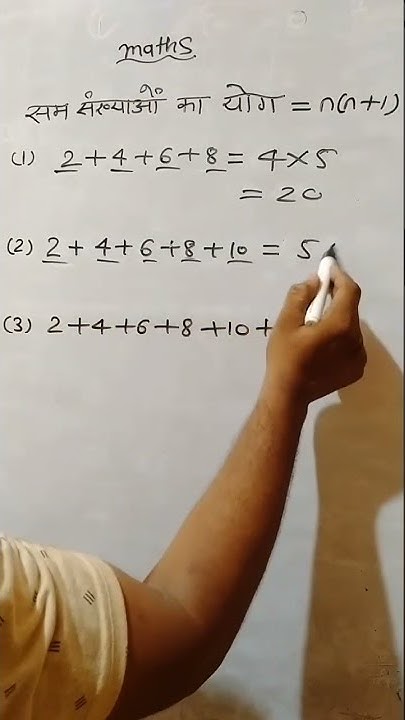 maths
सम संख्याओं का योग = n(n+1)
(1) 2+4+6+8 = 4×5
= 20
(2) 2+4+6+8+10 = 5
(3) 2+4+6+8+10+